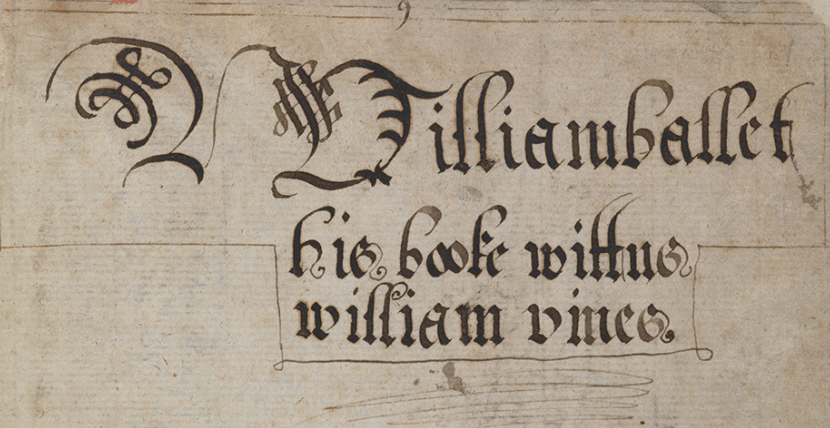 9
William ballet
his booke wittnus
william vines.